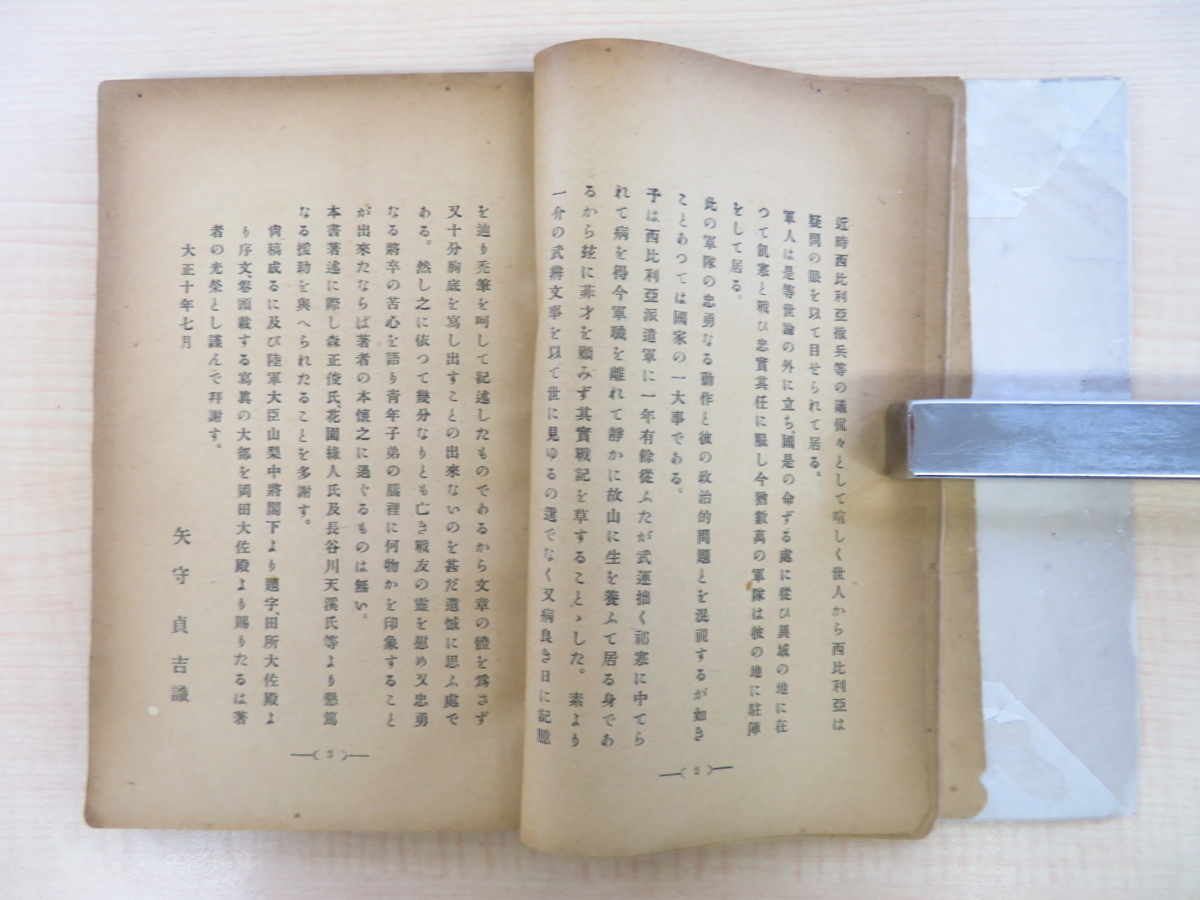 近時西比利亞撤兵等の議侃々として喧しく世人から西比利亞は
疑問の眼を以て目せられて居る。
軍人は是等世論の外に立ち、國是の命ずる處に從ひ異域の地に在
つて飢寒と戰ひ忠實其任に服し今猶數萬の軍隊は彼の地に駐陣
をして居る。
此の軍隊の忠勇なる動作と彼の政治的問題とを混視するが如き
ことあつては國家の一大事である。
予は西比利亞派遣軍に一年有餘從ふたが武運拙く祁寒に中てら
れて病を得今軍職を離れて靜かに故山に生を養ふて居る身であ
るから玆に菲才を顧みず其實戰記を草することゝした。素より
一介の武辨文事を以て世に見ゆるの選でなく又病良き日に記臆
―( 2 )―
を辿り禿筆を呵して記述したものであるから文章の體を爲さず
又十分胸底を寫し出すことの出來ないのを甚だ遺憾に思ふ處で
ある。然し之に依つて幾分なりとも亡き戰友の靈を慰め又忠勇
なる將卒の苦心を語り青年子弟の腦裡に何物かを印象すること
が出來たならば著者の本懷之に過ぐるものは無い。
本書著述に際し森正俊氏、花園綠人氏及長谷川天溪氏等より懇篤
なる援助を與へられたることを多謝す。
尙稿成るに及び陸軍大臣山梨中將閣下より題字、田所大佐殿よ
り序文、卷頭載する寫眞の大部を岡田大佐殿より賜りたるは著
者の光榮とし謹んで拜謝す。
大正十年七月
矢守貞吉識
―( 3 )―